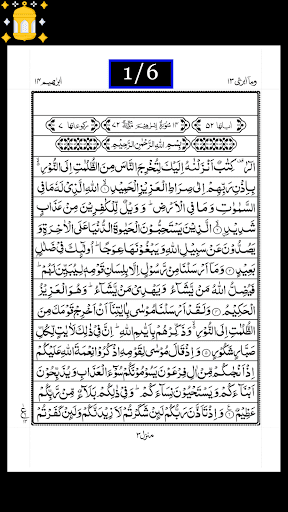 1/6
وما ابرئ ١٣
ابراهيم ١٤
اٰیاتها ٥٢
١٤ سُوْرَةُ اِبْرٰهِيْمَ مَكِّيَّةٌ ٧٢
رکوعاتها ٧
بِسْمِ اللّٰهِ الرَّحْمٰنِ الرَّحِيْمِ
الٓرٰ ۫ كِتٰبٌ اَنْزَلْنٰهُ اِلَيْكَ لِتُخْرِجَ النَّاسَ مِنَ الظُّلُمٰتِ اِلَى النُّوْرِ ۙ
بِاِذْنِ رَبِّهِمْ اِلٰى صِرَاطِ الْعَزِيْزِ الْحَمِيْدِ ۙ﴿۱﴾ اللّٰهِ الَّذِيْ لَهٗ مَا فِي
السَّمٰوٰتِ وَمَا فِي الْاَرْضِ ؕ وَوَيْلٌ لِّلْكٰفِرِيْنَ مِنْ عَذَابٍ
شَدِيْدِ ۙ﴿۲﴾ الَّذِيْنَ يَسْتَحِبُّوْنَ الْحَيٰوةَ الدُّنْيَا عَلَى الْاٰخِرَةِ وَ
يَصُدُّوْنَ عَنْ سَبِيْلِ اللّٰهِ وَيَبْغُوْنَهَا عِوَجًا ؕ اُولٰٓئِكَ فِيْ ضَلٰلٍۭ
بَعِيْدٍ ﴿۳﴾ وَمَاۤ اَرْسَلْنَا مِنْ رَّسُوْلٍ اِلَّا بِلِسَانِ قَوْمِهٖ لِيُبَيِّنَ لَهُمْ ؕ
فَيُضِلُّ اللّٰهُ مَنْ يَّشَآءُ وَيَهْدِيْ مَنْ يَّشَآءُ ؕ وَهُوَ الْعَزِيْزُ
الْحَكِيْمُ ﴿۴﴾ وَلَقَدْ اَرْسَلْنَا مُوْسٰى بِاٰيٰتِنَاۤ اَنْ اَخْرِجْ قَوْمَكَ مِنَ
الظُّلُمٰتِ اِلَى النُّوْرِ ۙ۬ وَذَكِّرْهُمْ بِاَيّٰىمِ اللّٰهِ ؕ اِنَّ فِيْ ذٰلِكَ لَاٰيٰتٍ لِّكُلِّ
صَبَّارٍ شَكُوْرٍ ﴿۵﴾ وَاِذْ قَالَ مُوْسٰى لِقَوْمِهِ اذْكُرُوْا نِعْمَةَ اللّٰهِ عَلَيْكُمْ
اِذْ اَنْجٰىكُمْ مِّنْ اٰلِ فِرْعَوْنَ يَسُوْمُوْنَكُمْ سُوْٓءَ الْعَذَابِ وَيُذَبِّحُوْنَ
اَبْنَآءَكُمْ وَيَسْتَحْيُوْنَ نِسَآءَكُمْ ؕ وَفِيْ ذٰلِكُمْ بَلَآءٌ مِّنْ رَّبِّكُمْ
عَظِيْمٌ ﴿۶﴾ وَاِذْ تَاَذَّنَ رَبُّكُمْ لَئِنْ شَكَرْتُمْ لَاَزِيْدَنَّكُمْ وَلَئِنْ كَفَرْتُمْ
منزل ٣